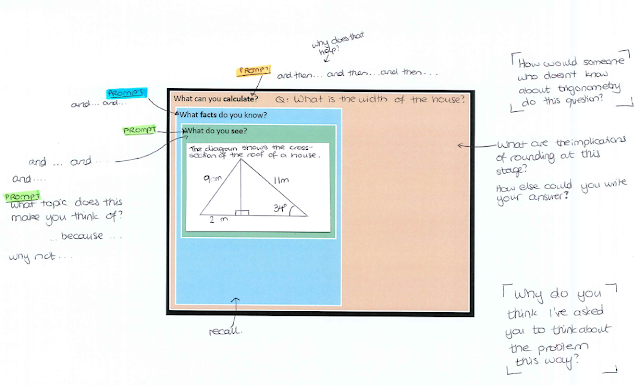 why does that
help?
PROMPT
and then... and then... and then...
How would someone
who doesn't know
about trigonometry
do this question?
PROMPT
and... and...
What can you calculate?
Q: What is the width of the house?
What facts do you know?
PROMPT
What do you see?
The diagram shows the cross-
section of the roof of a house.
9 m
11m
34°
2 m
and ... and...
and...
PROMPT
What topic does this
make you think of?
... because ...
why not...
What are the implications
of rounding at this
stage?
How else could you write
your answer?
recall.
Why do you
think I've asked
you to think about
the problem
this way?